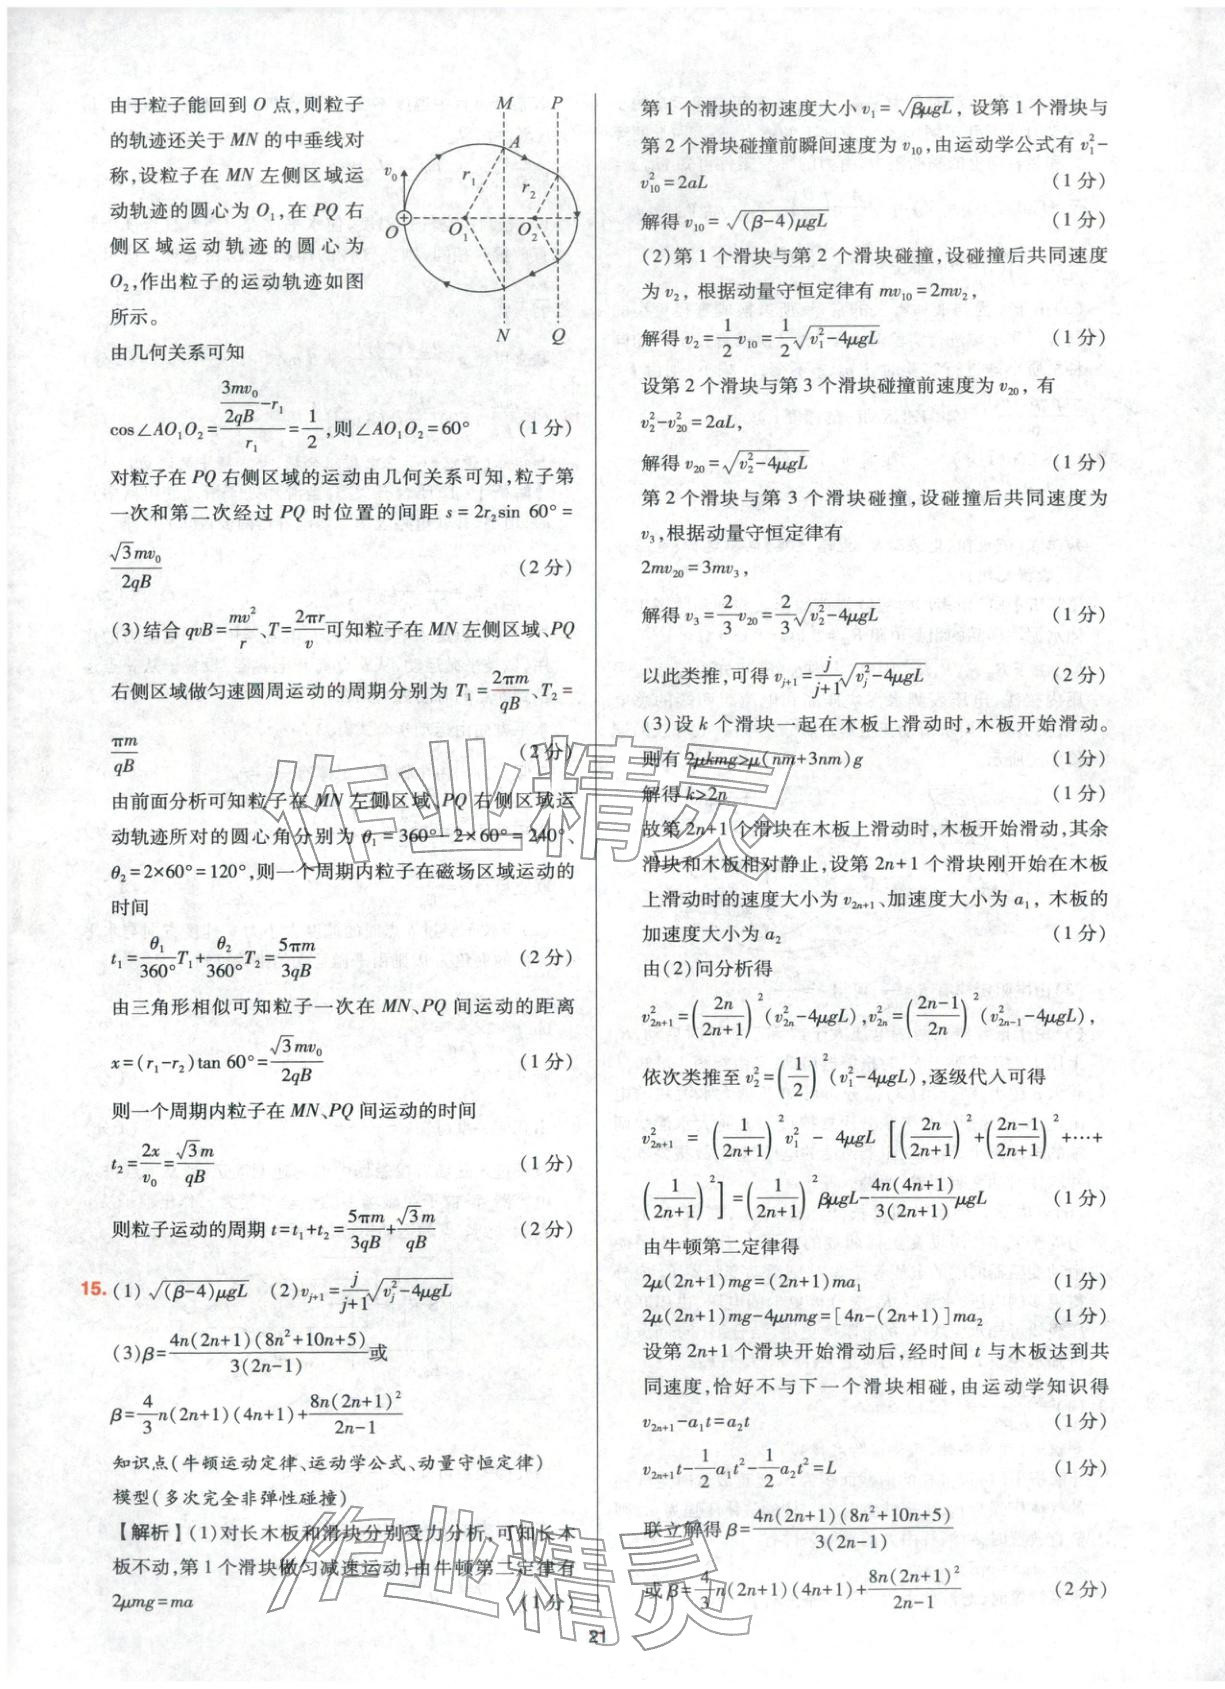 由于粒子能回到 O 点,则粒子
的轨迹还关于 MN 的中垂线对
称,设粒子在 MN 左侧区域运
动轨迹的圆心为 O₁,在 PQ 右
侧区域运动轨迹的圆心为
O₂,作出粒子的运动轨迹如图
所示。
M P
A
v₀ r₁ r₂
O O₁ O₂
N Q
由几何关系可知
cos∠AO₁O₂=(3mv₀/2qB-r₁)/r₁=1/2,则∠AO₁O₂=60° (1分)
对粒子在 PQ 右侧区域的运动由几何关系可知,粒子第
一次和第二次经过 PQ 时位置的间距 s=2r₂sin 60°=
√3mv₀/2qB (2分)
(3)结合 qvB=mv²/r、T=2πr/v可知粒子在 MN 左侧区域、PQ
右侧区域做匀速圆周运动的周期分别为 T₁=2πm/qB、T₂=
πm/qB (2分)
由前面分析可知粒子在 MN 左侧区域、PQ 右侧区域运
动轨迹所对的圆心角分别为 θ₁=360°-2×60°=240°、
θ₂=2×60°=120°,则一个周期内粒子在磁场区域运动的
时间
t₁=θ₁/360° T₁+θ₂/360° T₂=5πm/3qB (2分)
由三角形相似可知粒子一次在 MN、PQ 间运动的距离
x=(r₁-r₂)tan 60°=√3mv₀/2qB (1分)
则一个周期内粒子在 MN、PQ 间运动的时间
t₂=2x/v₀=√3m/qB (1分)
则粒子运动的周期 t=t₁+t₂=5πm/3qB+√3m/qB (2分)
15. (1) √((β-4)μgL) (2)vⱼ₊₁=j/(j+1)√(vⱼ²-4μgL)
(3)β=4n(2n+1)(8n²+10n+5)/3(2n-1)或
β=4/3 n(2n+1)(4n+1)+8n(2n+1)²/(2n-1)
知识点(牛顿运动定律、运动学公式、动量守恒定律)
模型(多次完全非弹性碰撞)
【解析】(1)对长木板和滑块分别受力分析,可知长木
板不动,第 1 个滑块做匀减速运动,由牛顿第二定律有
2μmg=ma (1分)
第 1 个滑块的初速度大小 v₁=√(βμgL),设第 1 个滑块与
第 2 个滑块碰撞前瞬间速度为 v₁₀,由运动学公式有 v₁²-
v₁₀²=2aL (1分)
解得 v₁₀=√((β-4)μgL) (1分)
(2)第 1 个滑块与第 2 个滑块碰撞,设碰撞后共同速度
为 v₂,根据动量守恒定律有 mv₁₀=2mv₂,
解得 v₂=1/2 v₁₀=1/2 √(v₁²-4μgL) (1分)
设第 2 个滑块与第 3 个滑块碰撞前速度为 v₂₀,有
v₂²-v₂₀²=2aL,
解得 v₂₀=√(v₂²-4μgL) (1分)
第 2 个滑块与第 3 个滑块碰撞,设碰撞后共同速度为
v₃,根据动量守恒定律有
2mv₂₀=3mv₃,
解得 v₃=2/3 v₂₀=2/3 √(v₂²-4μgL) (1分)
以此类推,可得 vⱼ₊₁=j/(j+1)√(vⱼ²-4μgL) (2分)
(3)设 k 个滑块一起在木板上滑动时,木板开始滑动。
则有 2μkmg>μ(nm+3nm)g (1分)
解得 k>2n (1分)
故第 2n+1 个滑块在木板上滑动时,木板开始滑动,其余
滑块和木板相对静止,设第 2n+1 个滑块刚开始在木板
上滑动时的速度大小为 v₂ₙ₊₁、加速度大小为 a₁,木板的
加速度大小为 a₂ (1分)
由(2)问分析得
v₂ₙ₊₁²=(2n/(2n+1))²(v₂ₙ²-4μgL),v₂ₙ²=((2n-1)/2n)²(v₂ₙ₋₁²-4μgL),
依次类推至 v₂²=(1/2)²(v₁²-4μgL),逐级代入可得
v₂ₙ₊₁² = (1/(2n+1))²v₁² - 4μgL [(2n/(2n+1))²+((2n-1)/(2n+1))²+⋯+
(1/(2n+1))²]=(1/(2n+1))²βμgL-4n(4n+1)/3(2n+1) μgL (1分)
由牛顿第二定律得
2μ(2n+1)mg=(2n+1)ma₁ (1分)
2μ(2n+1)mg-4μnmg=[4n-(2n+1)]ma₂ (1分)
设第 2n+1 个滑块开始滑动后,经时间 t 与木板达到共
同速度,恰好不与下一个滑块相碰,由运动学知识得
v₂ₙ₊₁-a₁t=a₂t (1分)
v₂ₙ₊₁t-1/2 a₁t²-1/2 a₂t²=L (1分)
联立解得 β=4n(2n+1)(8n²+10n+5)/3(2n-1)
或 β=4/3 n(2n+1)(4n+1)+8n(2n+1)²/(2n-1) (2分)
21
作业精灵
作业精灵